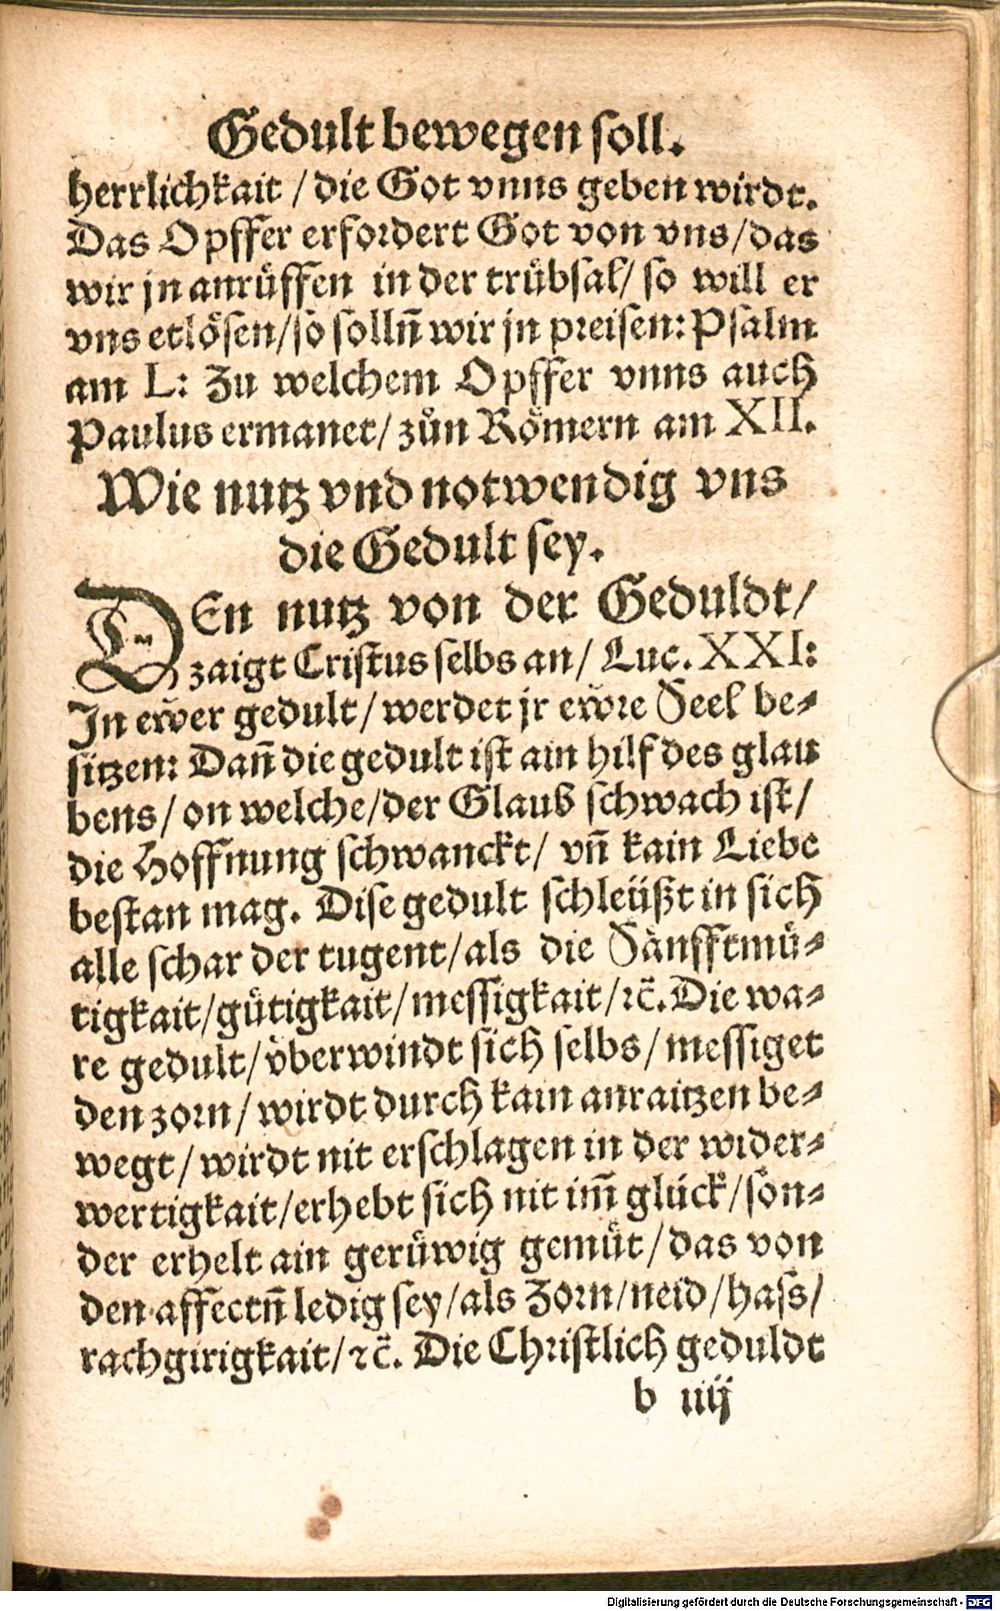 Gedult bewegen soll.
herrlichkait / die Got vnns geben wirdt.
Das Opffer erfordert Got von vns / das
wir jn anrüffen in der trübsal / so will er
vns etlösen / so sollñ wir jn preisen: Psalm
am L: Zu welchem Opffer vnns auch
Paulus ermanet / zůn Römern am XII.
Wie nutz vnd notwendig vns
die Gedult sey.
DEn nutz von der Geduldt /
zaigt Cristus selbs an / Luc. XXI:
In ewer gedult / werdet jr ewre Seel be⸗
sitzen: Dañ die gedult ist ain hilf des glau
bens / on welche / der Glaub schwach ist /
die Hoffnung schwanckt / vñ kain Liebe
bestan mag. Dise gedult schleüßt in sich
alle schar der tugent / als die Sänfftmü⸗
tigkait / gütigkait / messigkait / ꝛc̃. Die wa⸗
re gedult / vberwindt sich selbs / messiget
den zorn / wirdt durch kain anraitzen be⸗
wegt / wirdt nit erschlagen in der wider⸗
wertigkait / erhebt sich nit im̃ glück / son⸗
der erhelt ain gerüwig gemüt / das von
den affectñ ledig sey / als Zorn / neid / hass /
rachgirigkait / ꝛc̃. Die Christlich geduldt
b iiij
Digitalisierung gefördert durch die Deutsche Forschungsgemeinschaft - DFG